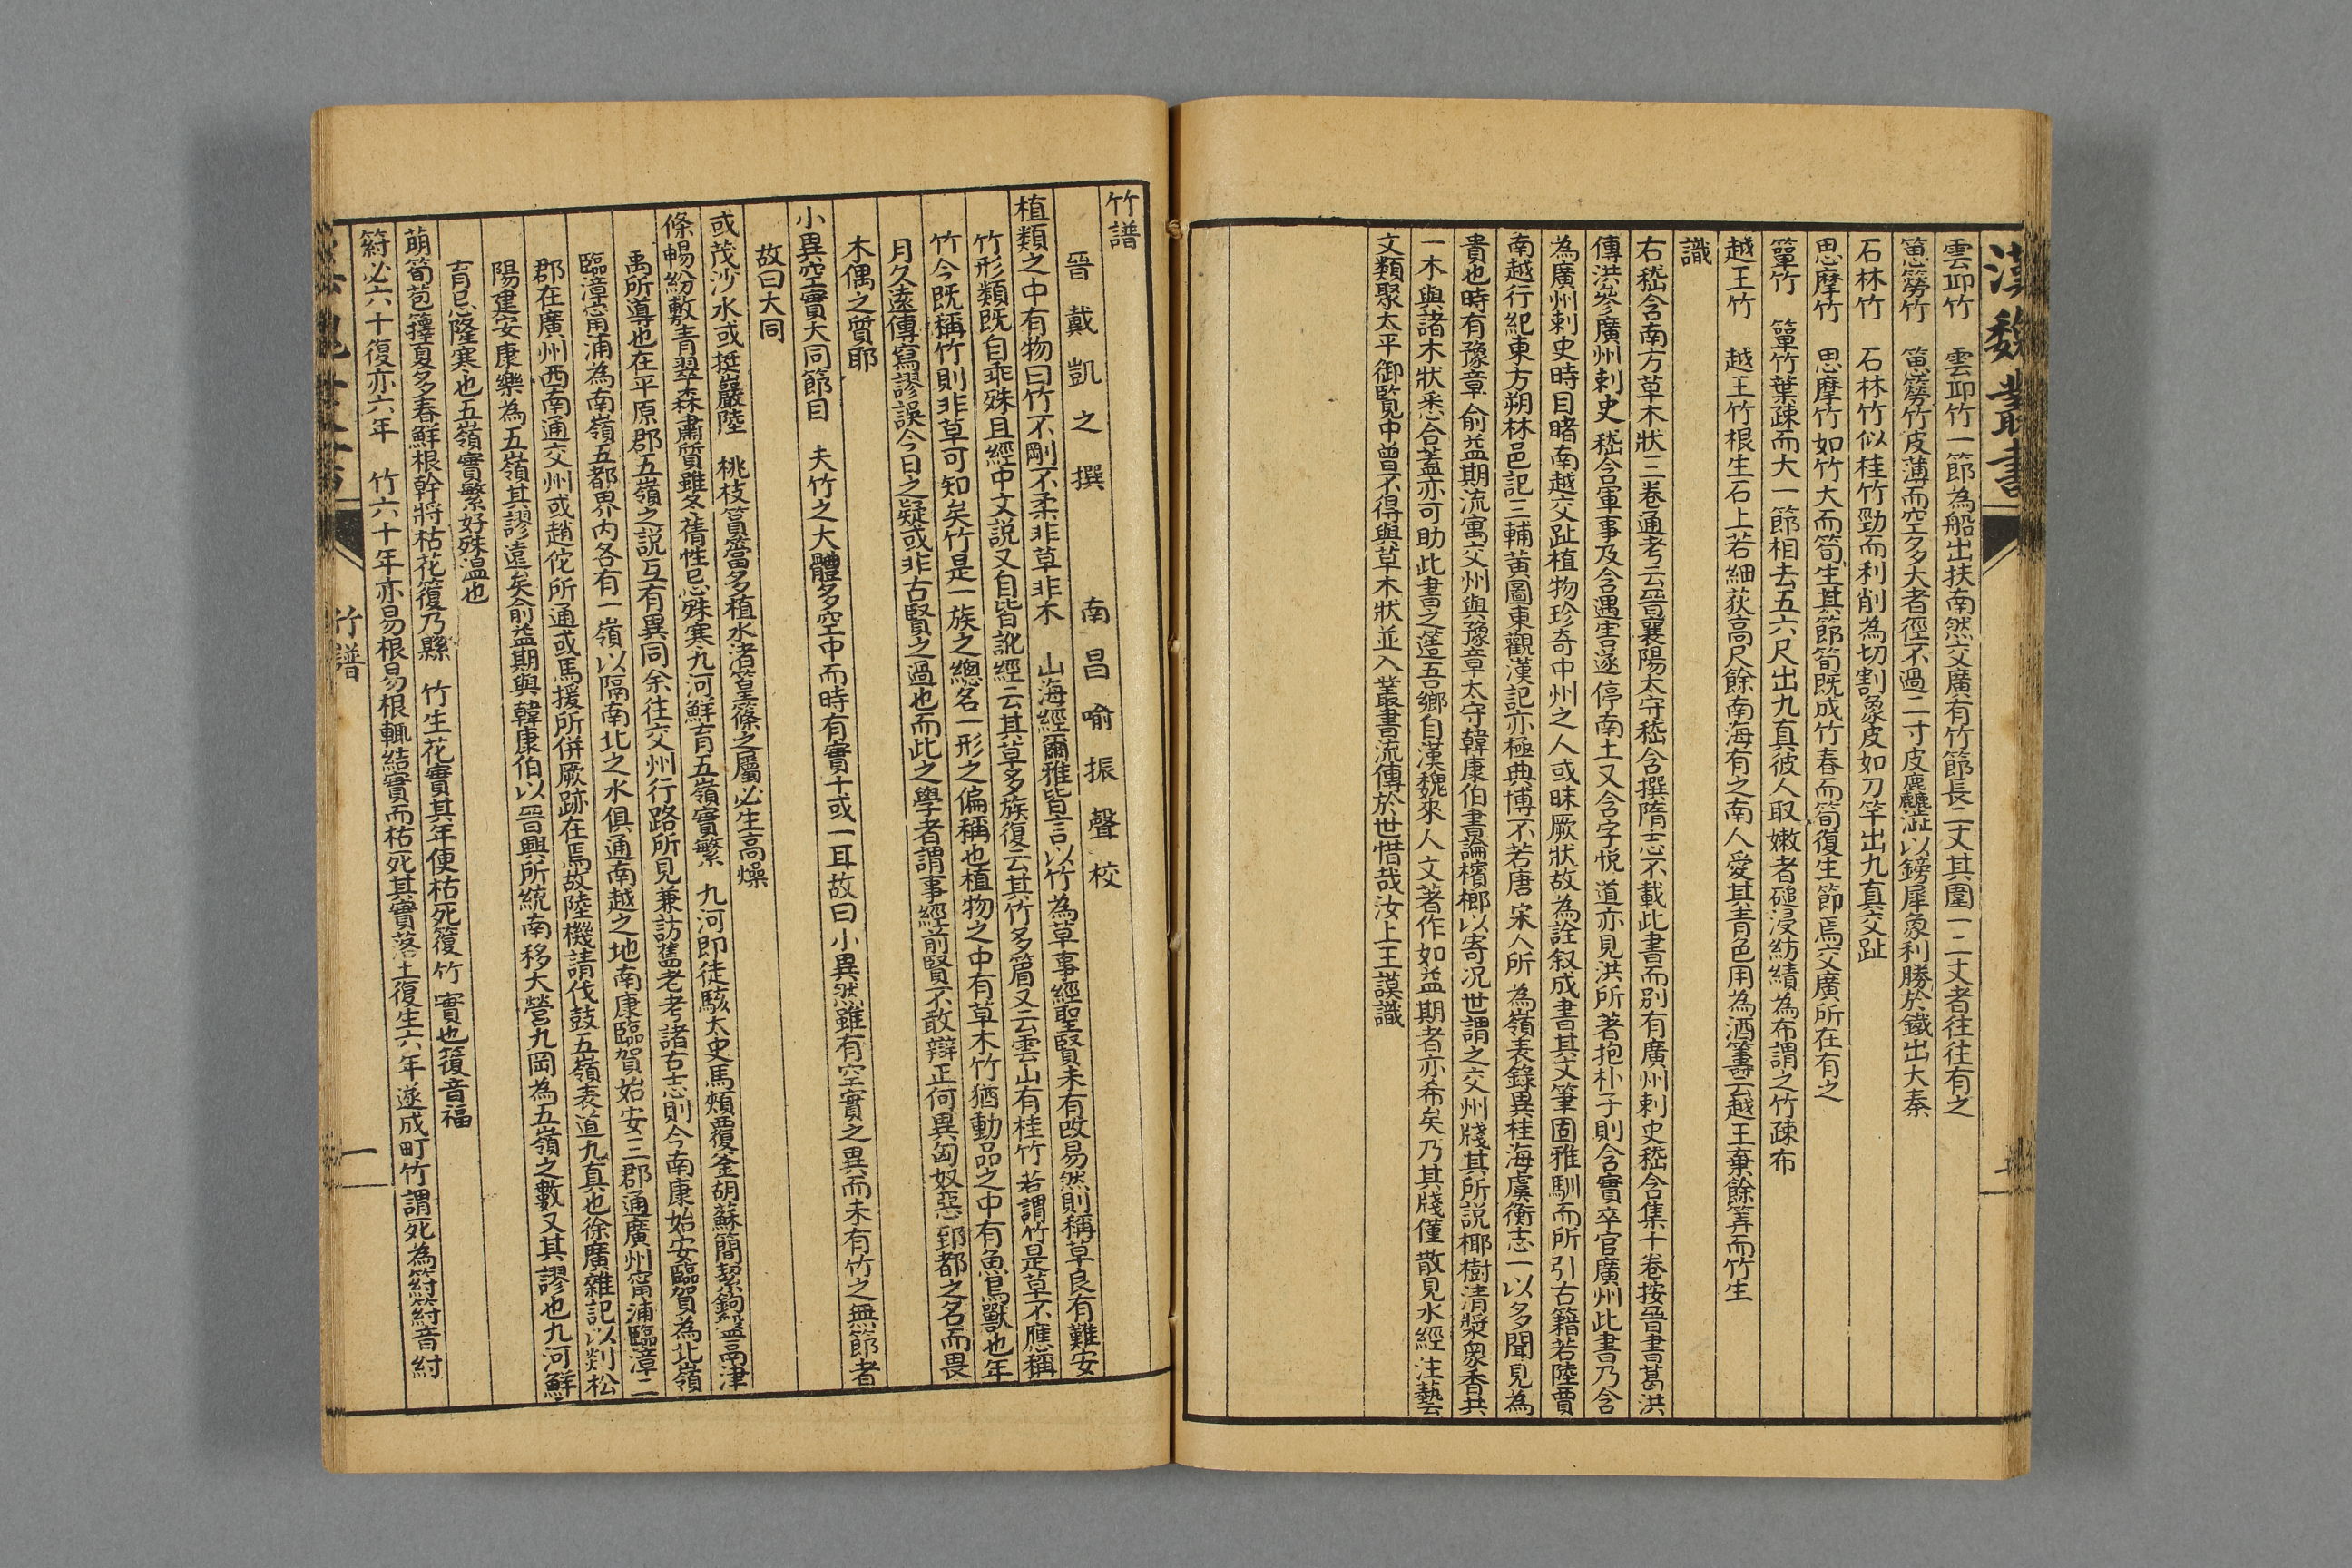 漢魏叢書
雲邱竹　雲邱竹一節為船出扶南然交廣有竹節長二丈其圍一二丈者往往有之
䈏簩竹　䈏簩竹皮薄而空多大者徑不過二寸皮麤澁以鎊犀象利勝於鐵出大秦
石林竹　石林竹似桂竹勁而利削為切割象皮如刀竿出九真交趾
思摩竹　思摩竹如竹大而筍生其節筍既成竹春而筍復生節焉交廣所在有之
簞竹　簞竹葉疎而大一節相去五六尺出九真彼人取嫩者磓浸紡績為布謂之竹疎布
越王竹　越王竹根生石上若細荻高尺餘南海有之南人愛其青色用為酒籌云越王棄餘筭而竹生
識
右嵇含南方草木狀三卷通考云晉襄陽太守嵇含撰隋志不載此書而別有廣州刺史嵇含集十卷按晉書葛洪
傳洪參廣州刺史嵇含軍事及含遇害遂停南土又含字悅道亦見洪所著抱朴子則含實卒官廣州此書乃含
為廣州刺史時目睹南越交趾植物珍奇中州之人或昧厥狀故為詮叙成書其文筆固雅馴而所引古籍若陸賈
南越行紀東方朔林邑記三輔黃圖東觀漢記亦極典博不若唐宋人所為嶺表錄異桂海虞衡志一以多聞見為
貴也時有豫章俞益期流寓交州與豫章太守韓康伯書論檳榔以寄況世謂之交州牋其所説椰樹清漿衆香共
一木與諸木狀悉合蓋亦可助此書之筵吾鄉自漢魏來人文著作如益期者亦希矣乃其牋僅散見水經注藝
文類聚太平御覽中曾不得與草木狀並入叢書流傳於世惜哉汝上王謨識
竹譜
晉戴凱之撰　南昌喻振聲校
植類之中有物曰竹不剛不柔非草非木　山海經爾雅皆言以竹為草事經聖賢未有改易然則稱草良有難安
竹形類既自乖殊且經中文説又自皆訛經云其草多族復云其竹多篃又云雲山有桂竹若謂竹是草不應稱
竹今既稱竹則非草可知矣竹是一族之總名一形之偏稱也植物之中有草木竹猶動品之中有魚鳥獸也年
月久遠傳寫謬誤今日之疑或非古賢之過也而此之學者謂事經前賢不敢辯正何異匈奴惡郅都之名而畏
木偶之質耶
小異空實大同節目　夫竹之大體多空中而時有實十或一耳故曰小異然雖有空實之異而未有竹之無節者
故曰大同
或茂沙水或挺巖陸　桃枝篔簹多植水渚篁篠之屬必生高燥
條暢紛敷青翠森肅質雖冬蒨性忌殊寒九河鮮育五嶺實繁　九河即徒駭太史馬頰覆釜胡蘇簡絜鉤盤鬲津
禹所導也在平原郡五嶺之説互有異同余往交州行路所見兼訪舊老考諸古志則今南康始安臨賀為北嶺
臨漳甯浦為南嶺五都界内各有一嶺以隔南北之水俱通南越之地南康臨賀始安三郡通廣州甯浦臨漳二
郡在廣州西南通交州或趙佗所通或馬援所併厥跡在焉故陸機請伐鼓五嶺表道九真也徐廣雜記以剡松
陽建安康樂為五嶺其謬遠矣俞益期與韓康伯以晉興所統南移大營九岡為五嶺之數又其謬也九河鮮
育忌隆寒也五嶺實繁好殊溫也
萌筍苞籜夏多春鮮根幹將枯花䈞乃縣　竹生花實其年便枯死䈞竹實也䈞音福
䈙必六十復亦六年　竹六十年亦易根易根輒結實而枯死其實落土復生六年遂成町竹謂死為䈙䈙音紂
竹譜
一